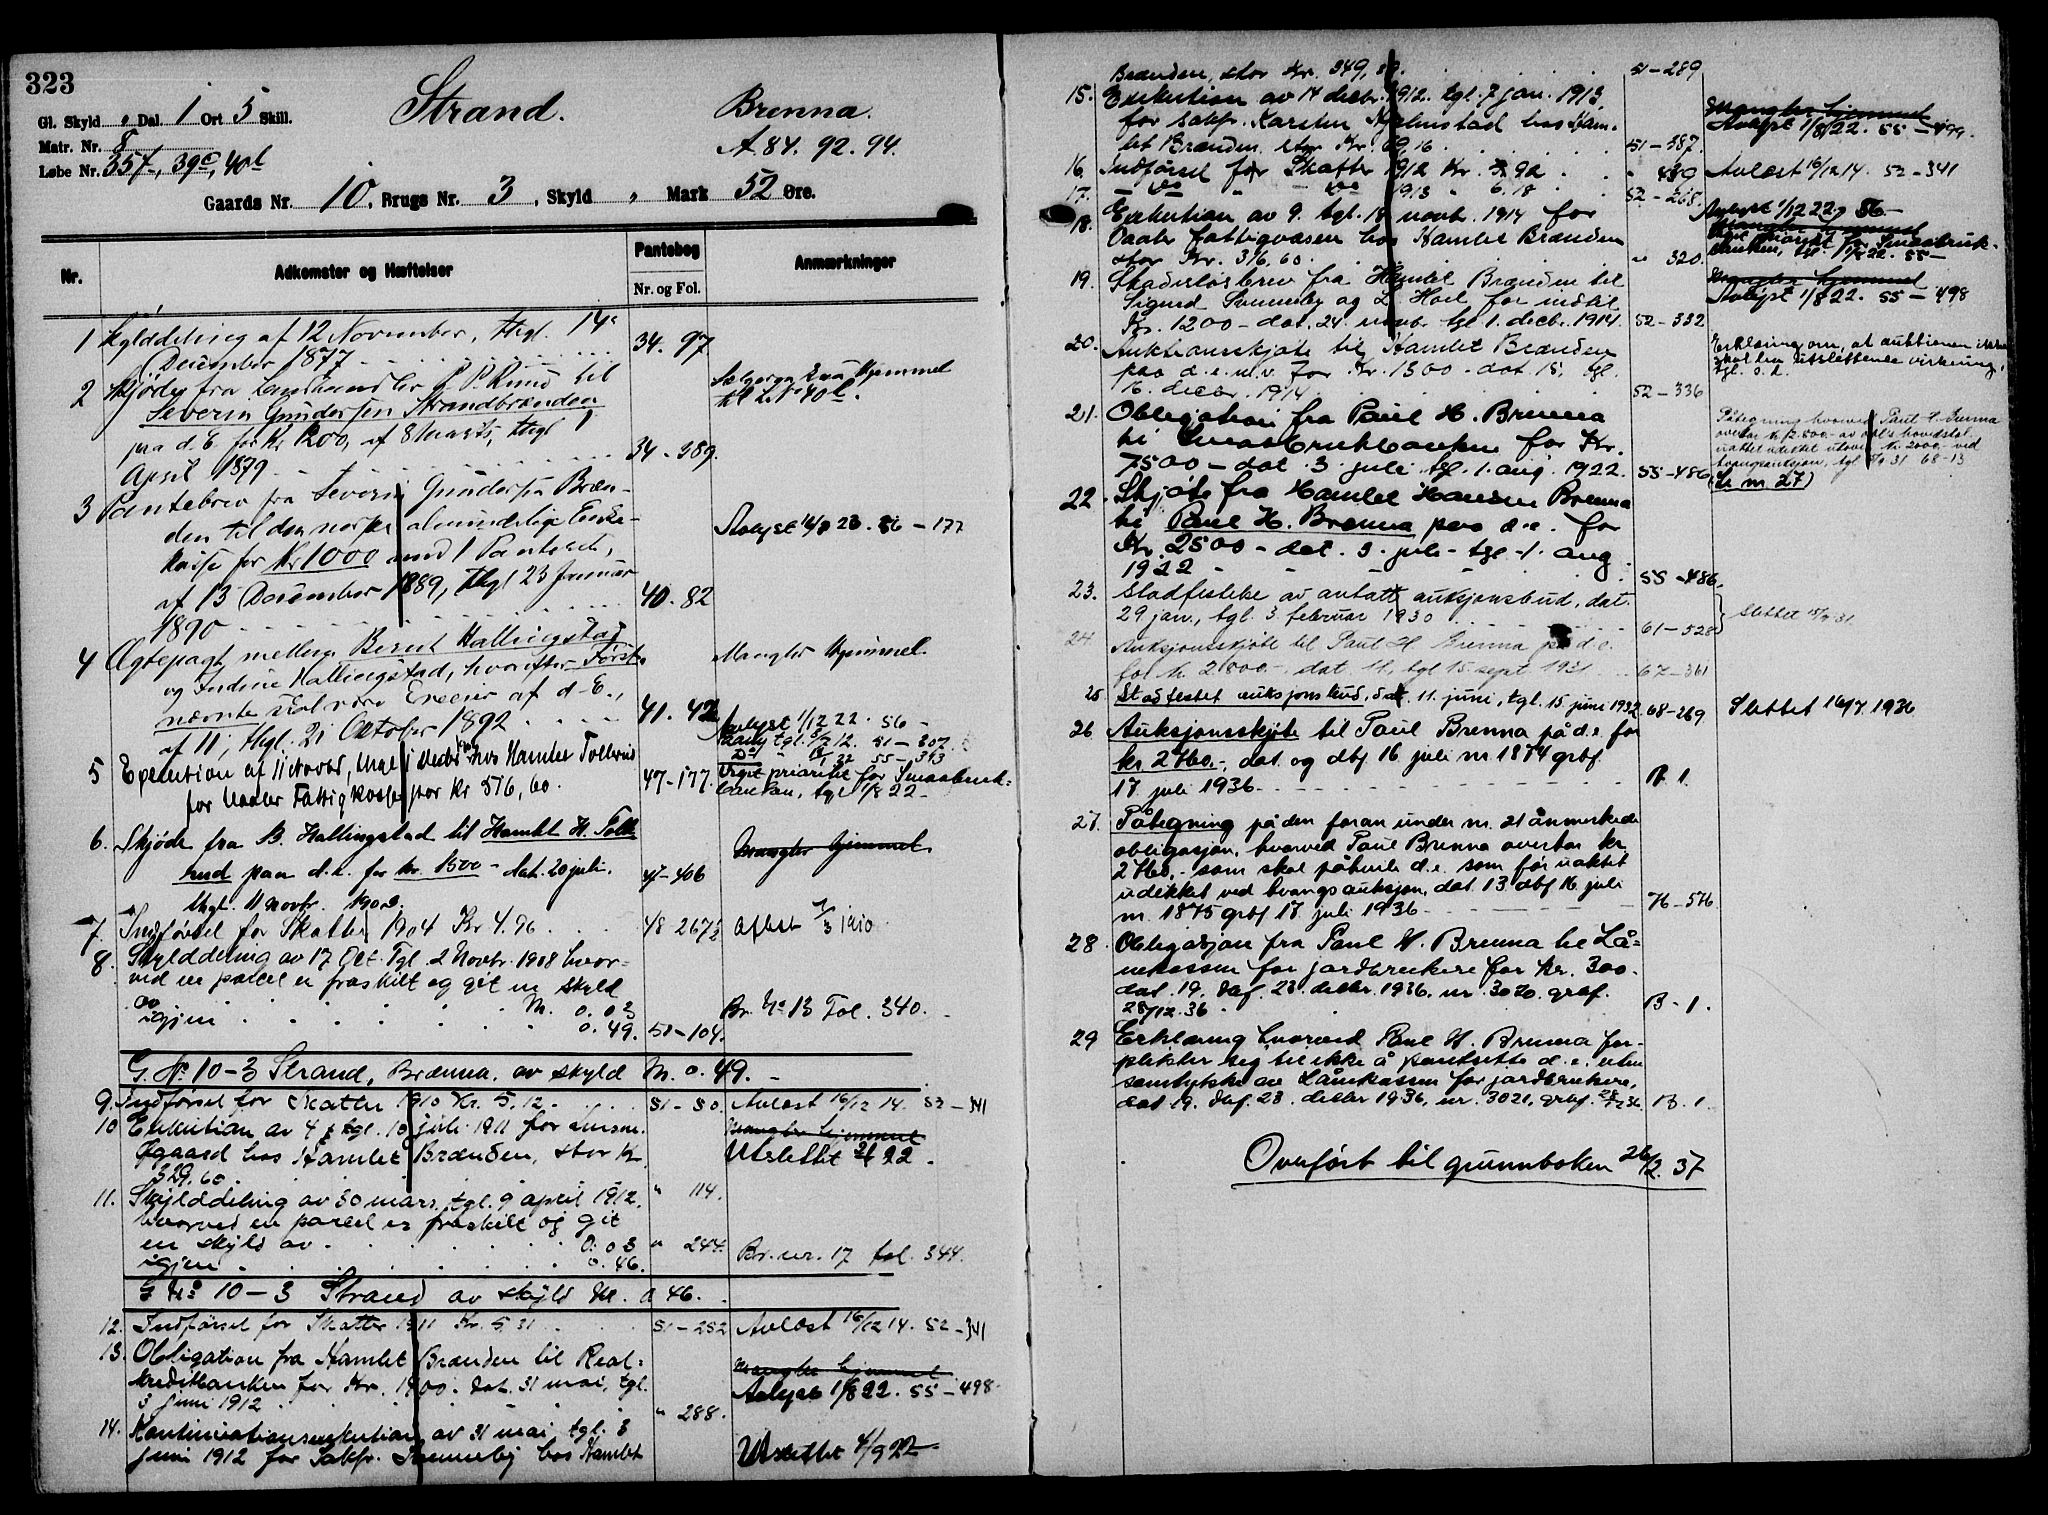 323
Gl. Skyld „ Dal. 1 Ort 5 Skill.
Matr. Nr. 8
Løbe Nr. 35f, 39c, 40l
Strand.
Brenna.
A. 84. 92. 94.
Gaards Nr. 10. Brugs Nr. 3, Skyld „ Mark 52 Øre.
Nr.
Adkomster og Hæftelser
Pantebog
Nr. og Fol.
Anmærkninger
1 Skylddeling af 12 November, thgl. 14de
December 1877 34. 97
2 Skjøde fra Landhandler P. Ruud til
Severin Gundersen Strandbrænden
paa d. E. for Kr 1200, af 8 Marts, thgl 1
April 1879 34 - 389.
Sælgeren Hjemmel
til L. No 40l.
3 Pantebrev fra Severin Gundersen Bræn-
den til den norske almindelige Enke-
kasse for Kr 1000 med 1 Panteret,
af 13 December 1889, thgl 23 Januar
1890 40. 82
Avlyst 14/8 23. 56 - 177
4 Ægtepagt mellem Bernt Hallingstad
og Indine Hallingstad, hvorefter Første
nævnte skal være Eneeier af d. E.,
af 11, thgl. 21 Oktober 1892 41. 42
Mangler Hjemmel.
5 Execution af 11 Novbr, thgl 1 Decbr hos Hamlet Tollerud
for Vaaler Fattigkasse stor Kr 576, 60. 47-177.
Avlyst 1/12 22. 56 -
51 - 307
Do 55 - 393
Veget prioritet for Smaabruk-
banken, tgl 1/8 22 -
6. Skjøde fra B. Hallingstad til Hamlet H. Tolle
rud paa d. e. for kr. 1500 - dat. 20 juli,
thgl. 11 novbr. 1902. 47-406
Mangler hjemmel.
7. Indførsel for Skatter 1904 Kr 4.96 48 267½
Aflæst 7/3 1910.
8. Skylddeling av 17 Okt. Tgl. 2 Novbr. 1908 hvor-
ved en parcel er fraskilt og git en skyld
av M. 0. 03
igjen 0. 49. 50-104.
Br. No 13 Fol. 340.
G. No 10-3 Strand, Brænna. av skyld M. 0. 49. -
9. Indførsel for Skatter 1910 Kr. 5.12. 51 - 50. Avlæst 16/12 14. 52 - 341
10 Exekution av 4 tgl. 10 juli 1911 for
Øgaard hos Hamlet Brænden, stor Kr.
329, 60. " 114.
Mangler hjemmel
Utslettet 22.
11. Skylddeling av 30 mars, tgl. 9 april 1912.
hvorved en parcel er fraskilt og git
en skyld av 0. 03 " 244.
igjen 0. 46.
Br. nr. 17 fol. 344.
G No 10-3 Strand av skyld M. 0 46.
12. Indførsel for Skatter 1911 Kr. 5, 31 51 - 252 Avlæst 16/12 14. 52 - 341
13. Obligation fra Hamlet Brænden til Real-
kreditbanken for Kr. 1900. Dat. 31 mai, tgl.
3 juni 1912 " 288.
Mangler hjemmel
Avlyst 1/8 22. 55 - 498.
14. Kontinuationsexekution av 31 mai, tgl. 3
juni 1912 for Sakfr. Sunneby hos Hamlet
Utslettet 4/9 22
Brænden, stor Kr. 349, 51 - 289
15. Exekution av 14 decbr. 1912. tgl. 7 jan. 1913,
for sakfr. Karsten Hjelmstad hos Ham-
let Brænden, stor Kr. 69, 16. 51 - 387.
Mangler hjemmel
Avlyst 1/8 22. 55 - 499.
16. Indførsel for Skatter 1912 Kr. 92 " 439 Avlæst 16/12 14. 52 - 341
17. - Do " " Do 1913 " 6. 18 52 - 268.
18. Exekution av 9. tgl. 18 novbr. 1914 for
Vaaler fattigvæsen hos Hamlet Brænden
stor Kr. 316, 60. " 320
Avlyst 1/12 22 56 -
Mangler hjemmel
Veget prioritet for Smaabruk-
banken, tgl. 1/8 22. 55 -
19. Skadesløsbrev fra Hamlet Brænden til
Sigurd Sunneby og L. Hoel for indtil
Kr. 1200 - dat. 24. novbr. tgl 1. decbr. 1914. 52 - 332
Mangler hjemmel
Avlyst 1/8 22. 55 - 498
20. Auktionsskjøte til Hamlet Brænden
paa d. e. m. v. for Kr. 1300 - dat 15, tgl.
16. decbr. 1914 52 - 336
Erklæring om, at auktionen ikke
skal ha utslettende virkning,
tgl. s. d.
21. Obligation fra Paul H. Brenna
til Smaabrukbanken for Kr.
7500 - dat. 3. juli tgl. 1. aug. 1922. 55-486
Påtegning hvorved Paul H. Brenna
overtar kr. 2.500.- av obl's hovedstol
uaktet udekket utover kr. 2000.- ved
tvangsauksjon, tgl 31 68-13
(Se nr. 27)
22 Skjøte fra Hamlet Hansen Brenna
til Paul H. Brenna paa d. e. for
Kr. 2500 - dat. 3. juli - tgl. 1. aug.
1922 55-486.
23. Stadfestelse av antatt auksjonsbud, dat.
29 jan., tgl. 3. februar 1930 61 - 528
Slettet 15/9 31.
24 Auksjonsskjøte til Paul H. Brenna på d. e.
for kr. 2.000.-, dat. 11, tgl 15. sept. 1931 67-361
25 Stadfestet auksjonsbud, dat. 11. juni, tgl. 15. juni 1932 68-269 Slettet 16/7 1936
26 Auksjonsskjøte til Paul Brenna på d. e. for
kr. 2460.-, dat. og dbf 16. juli nr 1874 grbf
17. juli 1936. B. 1.
27. Påtegning på den foran under nr. 21 anmerkede
obligasjon, hvorved Paul Brenna overtar kr
2460.- som skal påhvile d. e. som før uaktet
udekket ved tvangsauksjon, dat. 13. dbf 16. juli
nr. 1875 grbf 17 juli 1936. 76-576.
28. Obligasjon fra Paul H. Brenna til Lå-
nekassen for jordbrukere for kr. 300.
dat. 19. dbf. 23. desbr. 1936. nr. 3020. grbf.
28/12. 36. B. 1.
29 Erklæring hvorved Paul H. Brenna for-
plikter seg til ikke å pantsette d. e. uten
samtykke av Lånekassen for jordbrukere,
dat. 19. dbf. 23. desbr 1936, nr. 3021, grbf. 28/12 36. B. 1.
Overført til grunnboken 26/2. 37